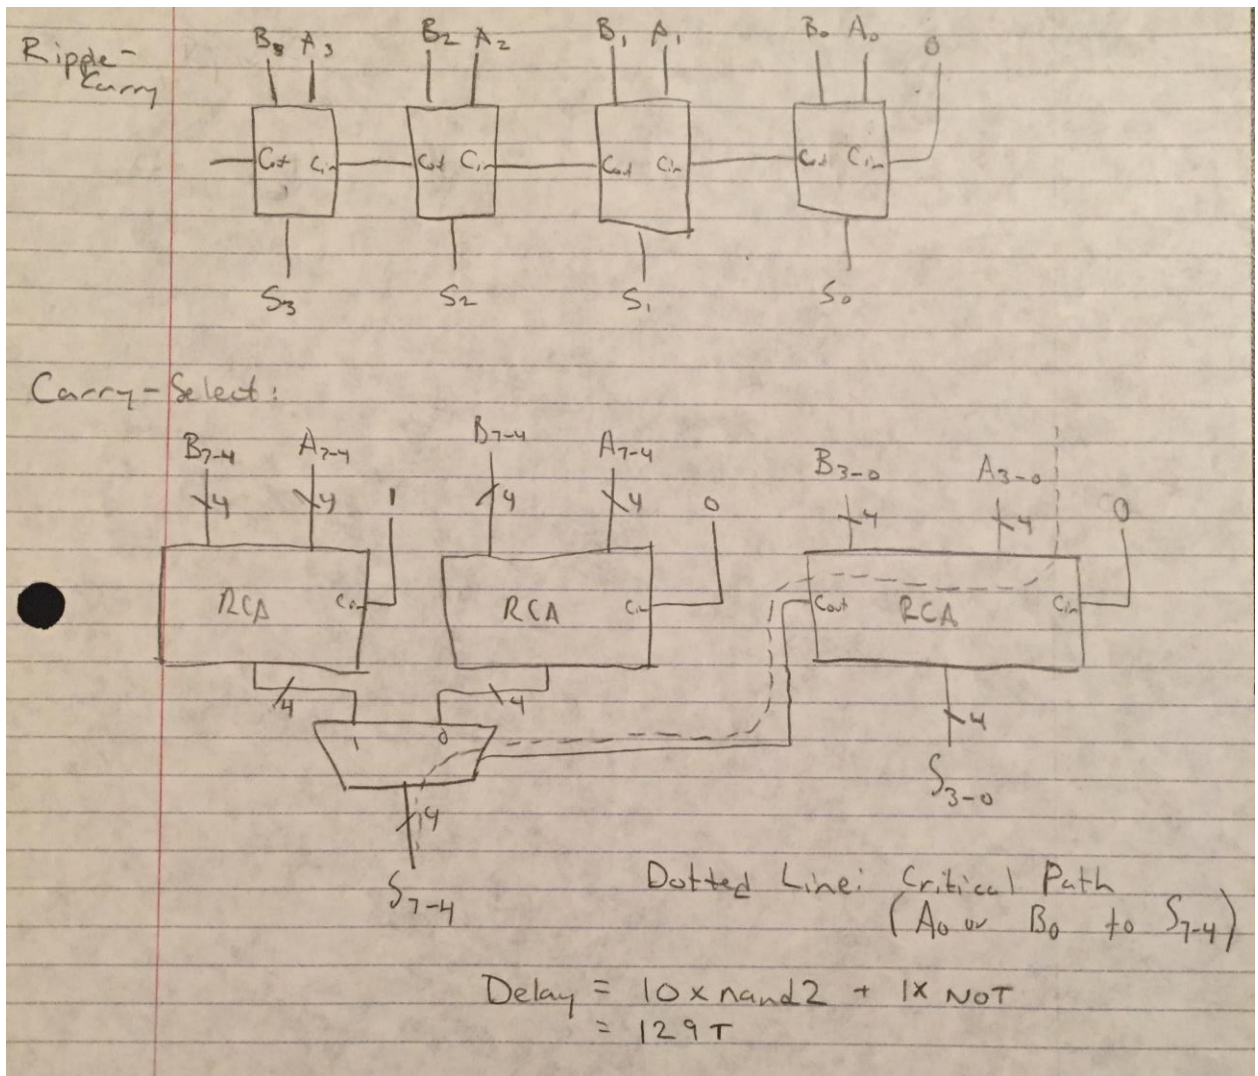 Ripple-
Carry
B3 A3 B2 A2 B1 A1 B0 A0 0
Cout Cin Cout Cin Cout Cin Cout Cin
S3 S2 S1 S0
Carry-Select:
B7-4 A7-4 1 B7-4 A7-4 0 B3-0 A3-0 0
4 4 4 4 4 4
RCA Cin RCA Cin Cout RCA Cin
4 4 4
1 0
S3-0
4
S7-4
Dotted Line: Critical Path
(A0 or B0 to S7-4)
Delay = 10 x nand2 + 1x NOT
= 129T